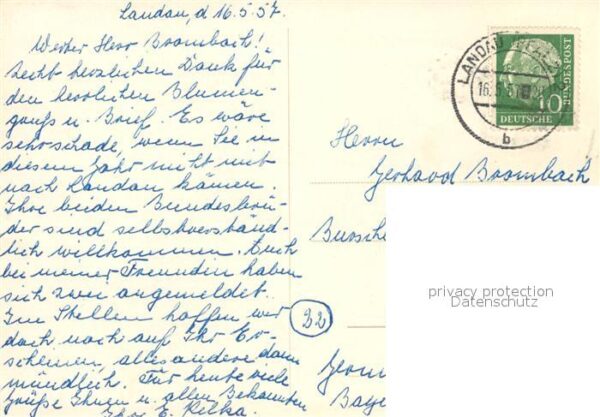 Landau, d 16.5.57.
Werter Herr Brombach!
Recht herzlichen Dank für
den herrlichen Blumen-
gruß u. Brief. Es wäre
sehr schade, wenn Sie in
diesem Jahr nicht mit
nach Landau kämen.
Ihre beiden Bundesbrü-
der sind selbstverständ-
lich willkommen. Auch
bei meiner Freunden haben
sich zwei angemeldet.
Im Stellen hoffen wir
doch noch auf Ihr Er-
scheinen, alles andere dann
mündlich. Für heute viele
Grüße Ihnen u. allen Bekannten
Ihre E. Rilka.
LANDAU (PFALZ)
16.5.57
b
10
DEUTSCHE
BUNDESPOST
Herrn
Gerhard Brombach
Bursche
22
privacy protection
Datenschutz
Germ